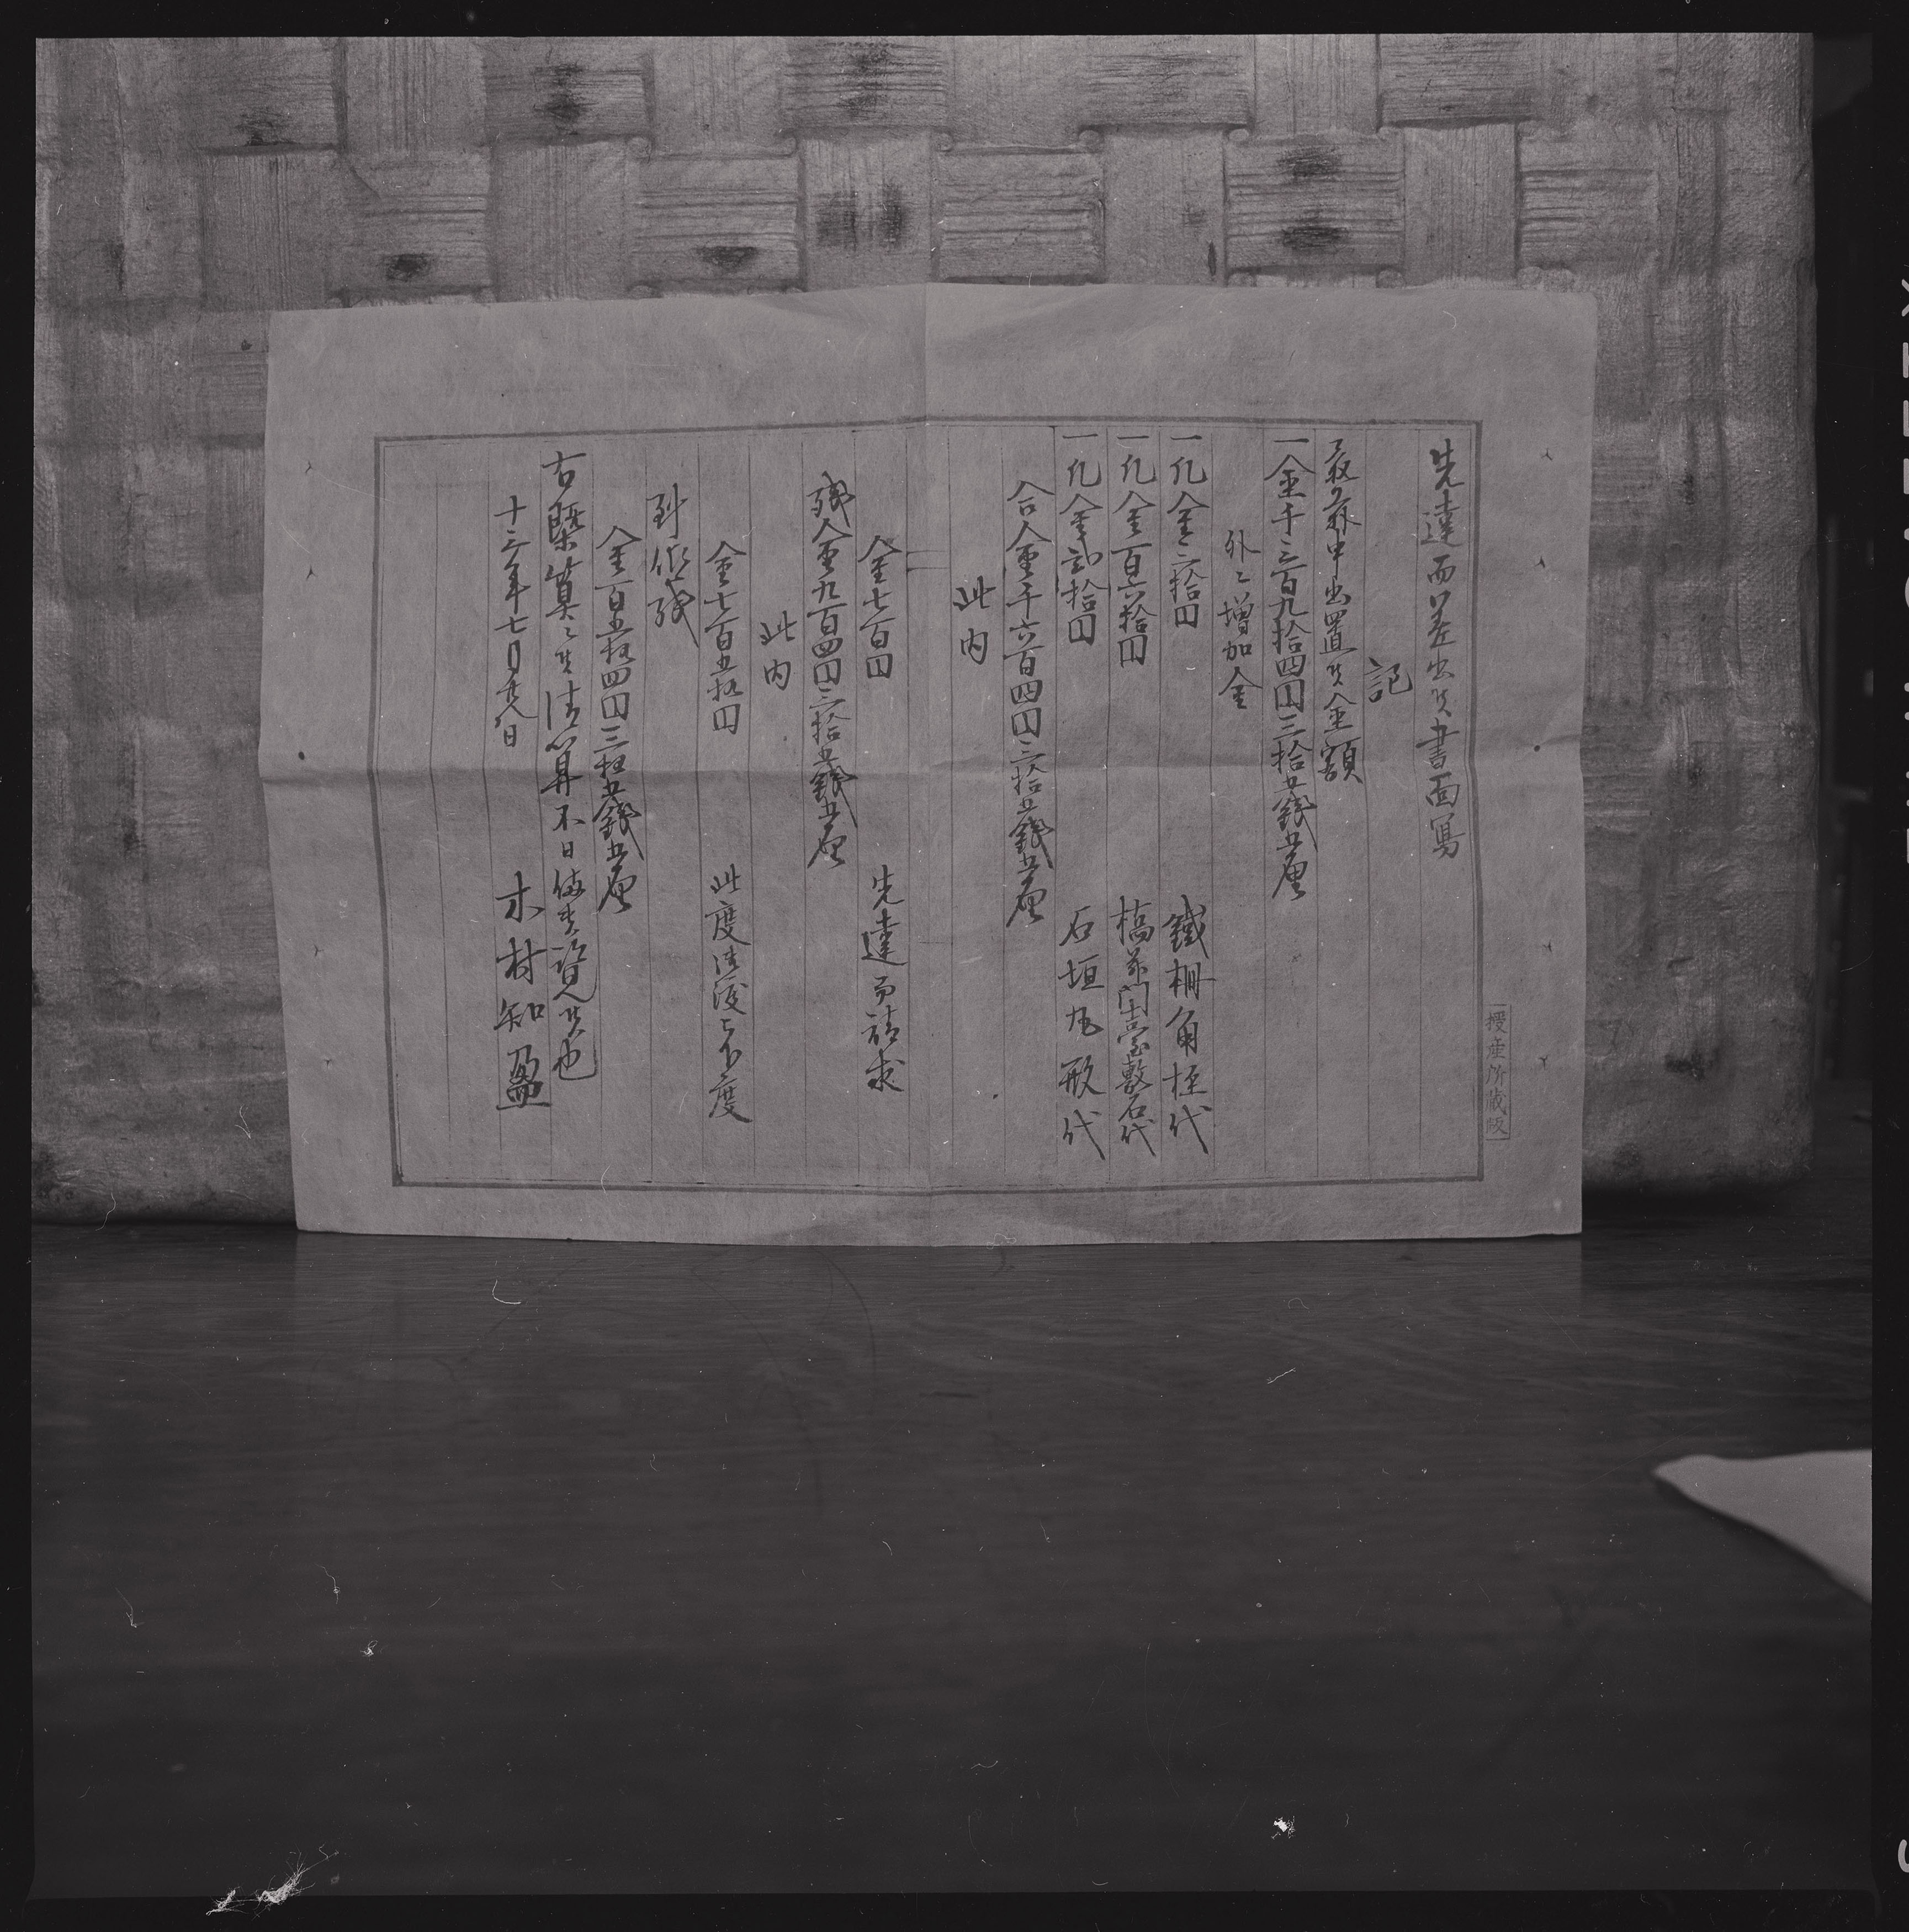 先達而差出候書面写
記
最前申出置候金額
一金千三百九拾四円三拾五銭五厘
外ニ増加金
一仝金三拾円 鐵柵角柱代
一仝金百六拾円 橋前門臺敷石代
一仝金弐拾円 石垣丸形代
合金千六百四円三拾五銭五厘
此内
金七百円 先達而請求
残金九百四円三拾五銭五厘
此内
金七百五拾円 此度
金百五拾四円三拾五銭五厘
右概算ニ候清算不日
十三年七月廿八日 木村知
授産所蔵版